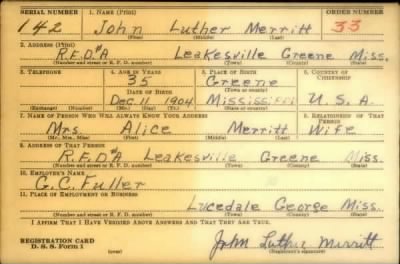 SERIAL NUMBER 1. NAME (Print) ORDER NUMBER
142 John Luther Merritt 33
(First) (Middle) (Last)
2. ADDRESS (Print)
R.F.D.#A Leakesville Greene Miss.
(Number and street or R. F. D. number) (Town) (County) (State)
3. TELEPHONE 4. AGE IN YEARS 5. PLACE OF BIRTH 6. COUNTRY OF CITIZENSHIP
35 Greene
DATE OF BIRTH (Town or county)
Dec 11 1904 Mississippi U.S.A.
(Exchange) (Number) (Mo.) (Day) (Yr.) (State or country)
7. NAME OF PERSON WHO WILL ALWAYS KNOW YOUR ADDRESS 8. RELATIONSHIP OF THAT PERSON
Mrs. Alice Merritt Wife
(Mr., Mrs., Miss) (First) (Middle) (Last)
9. ADDRESS OF THAT PERSON
R.F.D.#A Leakesville Greene Miss.
(Number and street or R. F. D. number) (Town) (County) (State)
10. EMPLOYER'S NAME
G.C. Fuller
11. PLACE OF EMPLOYMENT OR BUSINESS
Lucedale George Miss.
(Number and street or R. F. D. number) (Town) (County) (State)
I AFFIRM THAT I HAVE VERIFIED ABOVE ANSWERS AND THAT THEY ARE TRUE.
REGISTRATION CARD
D. S. S. FORM 1 (over) John Luther Merritt
(Signature)